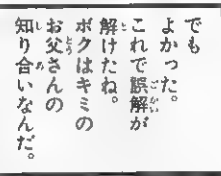 でも
よかった。
これで誤解が
解けたね。
ボクはキミの
お父さんの
知り合いなんだ。